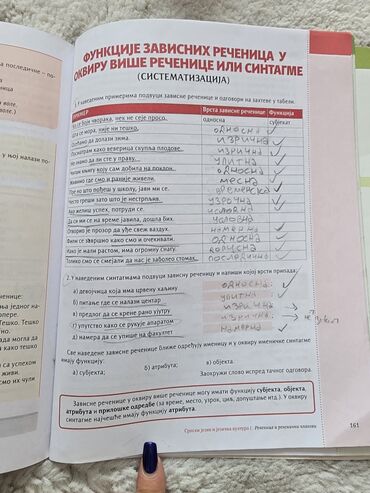 ФУНКЦИЈЕ ЗАВИСНИХ РЕЧЕНИЦА У
ОКВИРУ ВИШЕ РЕЧЕНИЦЕ ИЛИ СИНТАГМЕ
(СИСТЕМАТИЗАЦИЈА)
1. У наведеним примерима подвуци зависне реченице и одговори на захтеве у табели.
ПРИМЕР Врста зависне реченице Функција
Ко се боји чворака, нек не сеје просо. односна субјекат
Шта се мора, није ни тешко. односна
долази зима. изрична
како веверица скупља плодове. изрична
Не знамо да ли сте у праву. упитна
књигу коју сам добила на поклон. односна
Живимо где смо и раније живели. месна
Пре но што пођеш у школу, јави ми се. временска
Често греши зато што је нестрпљив. узрочна
Ако желиш успех, потруди се. условна
Да си ми се на време јавила, дошла бих.
Отворио је прозор да уђе свеж ваздух. намерна
Филм се завршио како смо и очекивали. односна
Иако је мали растом, има огромну снагу. допусна
Толико смо се смејали да нас је заболео стомак. последична
2. У наведеним синтагмама подвуци зависну реченицу и напиши којој врсти припада.
а) девојчица која има црвену хаљину односна
б) питање где се налази центар упитна
в) предлог да се крене рано ујутру изрична
г) упутство како се рукује апаратом изрична
д) намера да се упише на факултет намерна
Све наведене зависне реченице ближе одређују именицу и у оквиру именичке синтагме
имају функцију:
а) субјекта; б) атрибута; в) објекта.
Заокружи слово испред тачног одговора.
Зависне реченице у оквиру више реченице могу имати функцију субјекта, објекта,
атрибута и прилошке одредбе (за време, место, узрок, циљ, допуштање итд.). У оквиру
синтагме најчешће имају функцију атрибута.
Српски језик и језичка култура | Реченица и реченични чланови 161